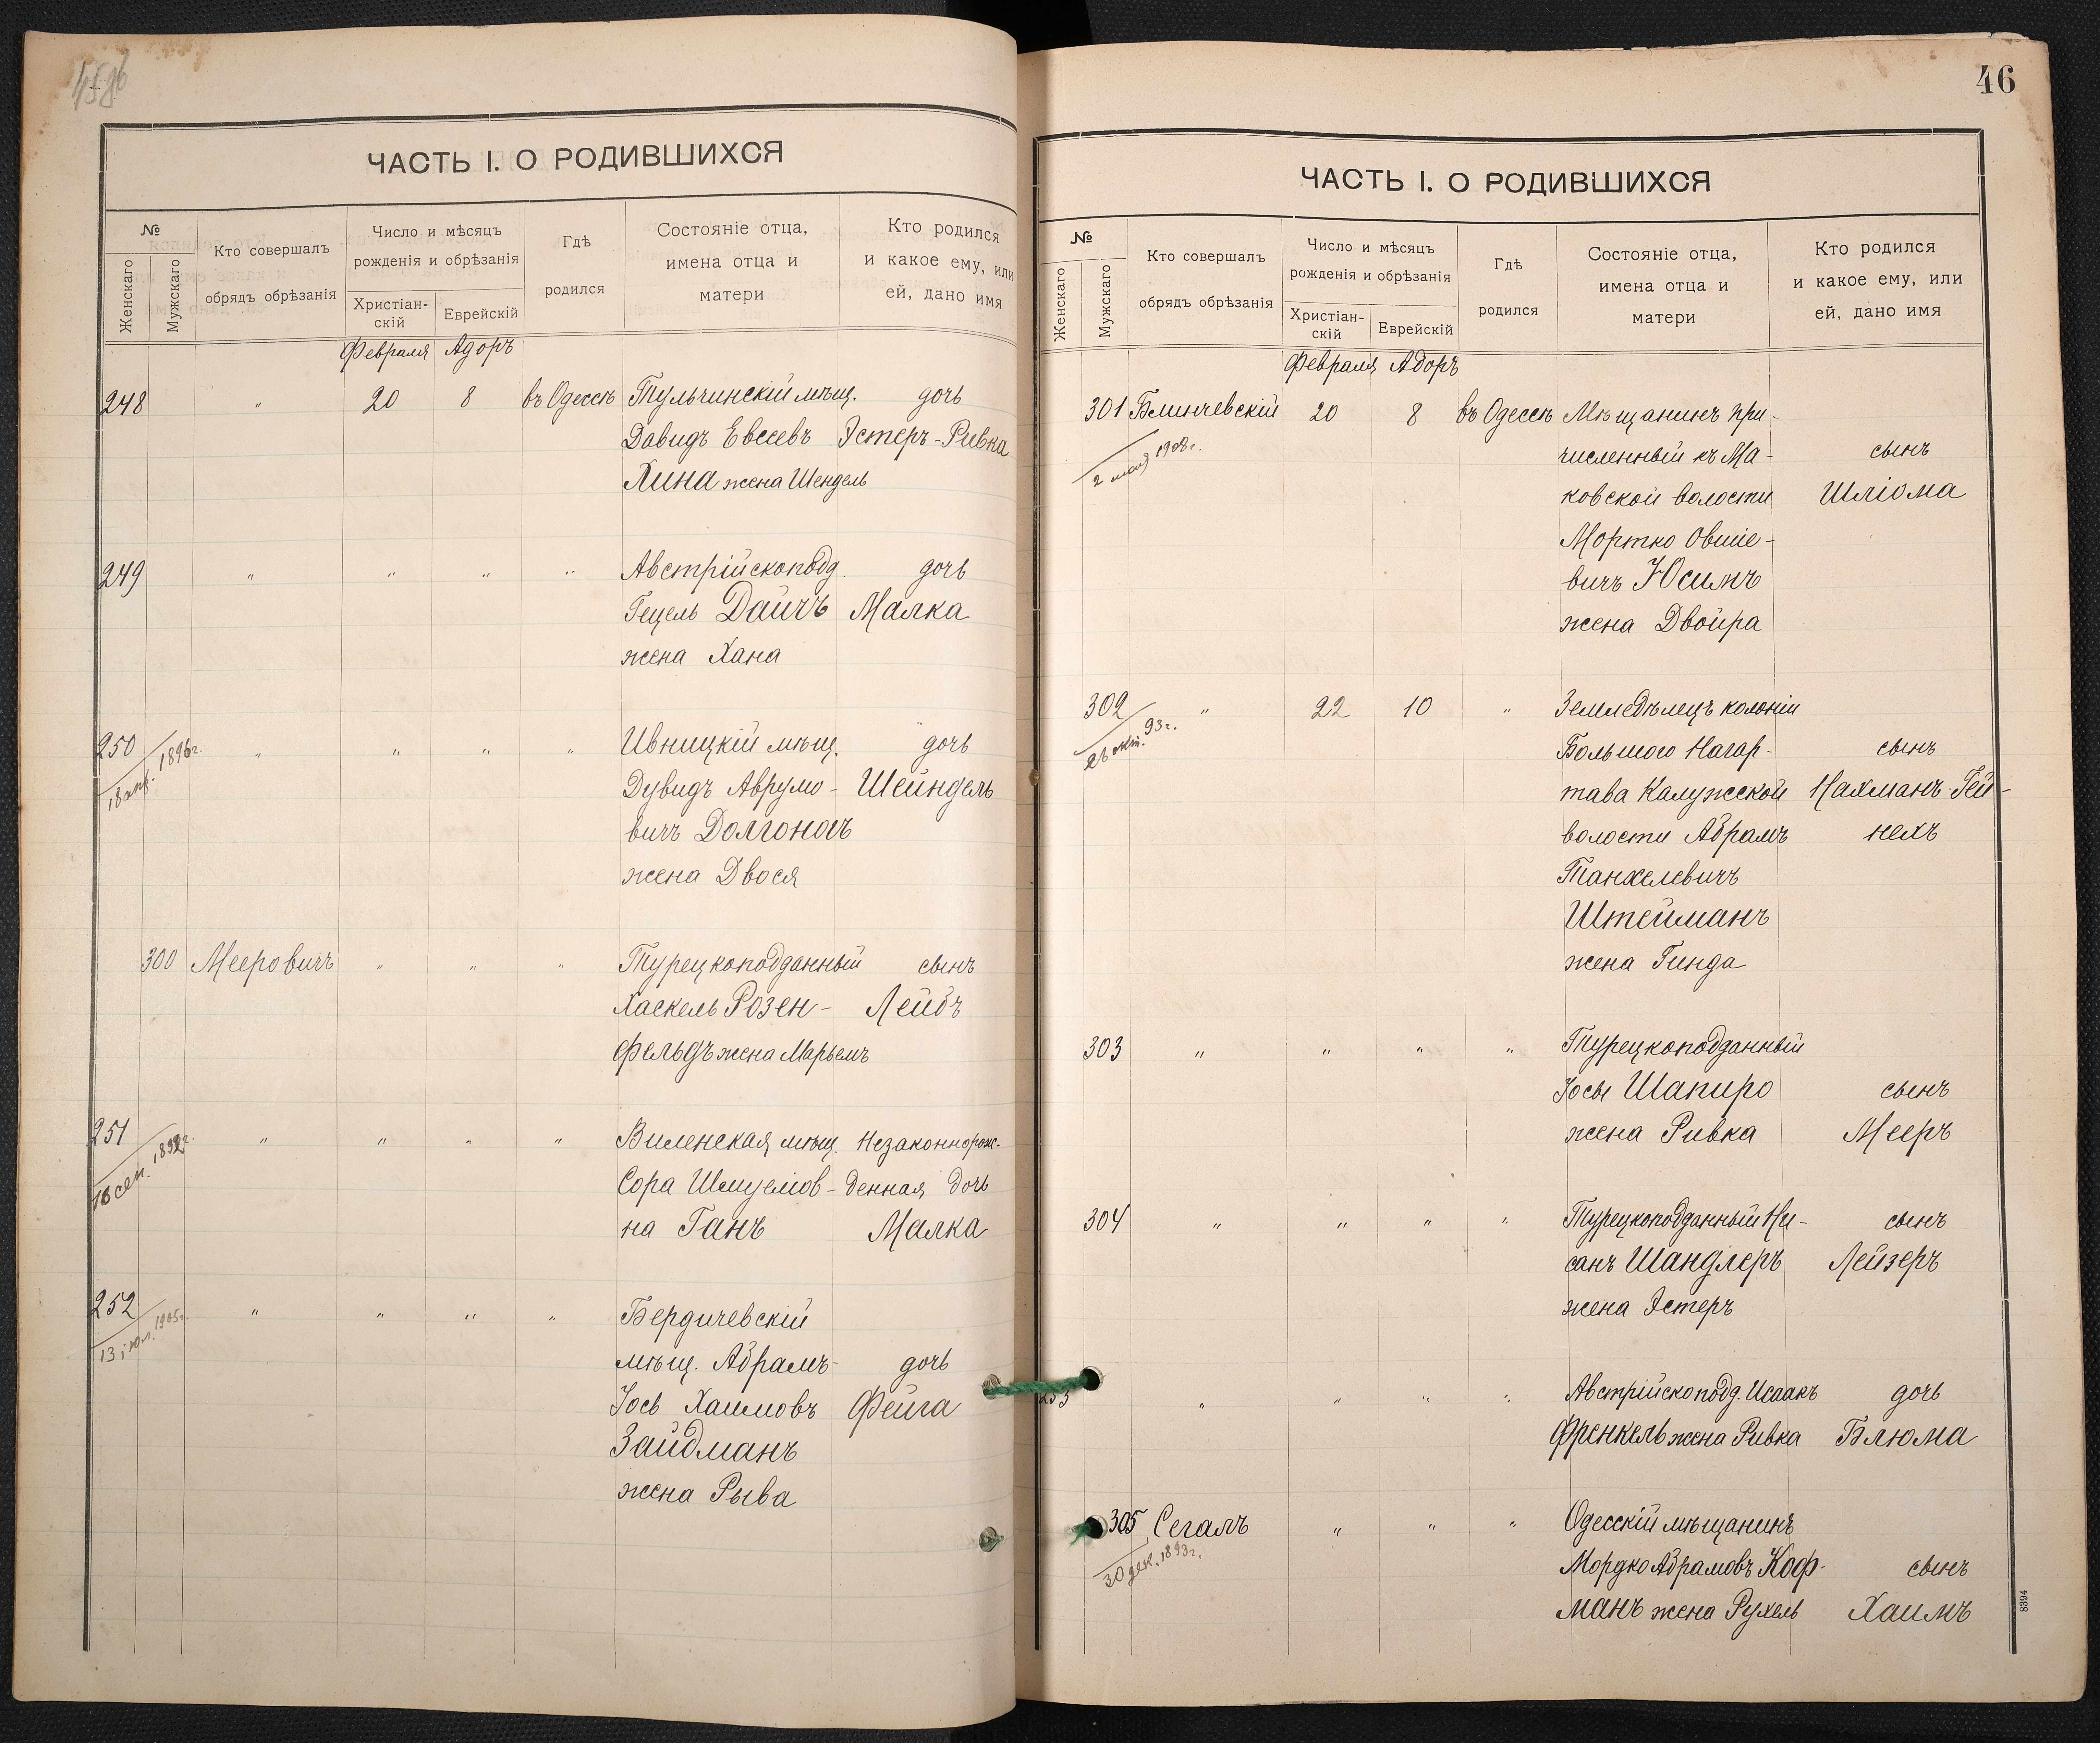 ЧАСТЬ I. О РОДИВШИХСЯ
№
Женскаго
Мужскаго
Кто совершалъ
обрядъ обрѣзанія
Число и мѣсяцъ
рожденія и обрѣзанія
Христіан-
скій
Еврейскій
Гдѣ
родился
Состояніе отца,
имена отца и
матери
Кто родился
и какое ему, или
ей, дано имя
Февраля Адоръ
248 " 20 8 въ Одессѣ Тульчинскій мѣщ. дочь
Давидъ Евсеевъ Эстеръ-Ривка
Хина жена Шендель
249 " " " " Австрійскоподд. дочь
Гецель Дайчъ Малка
жена Хана
250 " " " " Ивницкій мѣщ. дочь
18 апр. 1896г.
Дувидъ Аврумо- Шейндель
вичъ Долгоносъ
жена Двося
300 Мееровичъ " " " Турецкоподданный сынъ
Хаскель Розен- Лейбъ
фельдъ жена Марьемъ
251 " " " " Виленская мѣщ. незаконнорож-
Сора Шмуелов- денная дочь
на Ганъ Малка
252 " " " " Бердичевскій
13 іюл. 1905г.
мѣщ. Абрамъ- дочь
Іось Хаимовъ Фейга
Зайдманъ
жена Рыва
46
ЧАСТЬ I. О РОДИВШИХСЯ
№
Женскаго
Мужскаго
Кто совершалъ
обрядъ обрѣзанія
Число и мѣсяцъ
рожденія и обрѣзанія
Христіан-
скій
Еврейскій
Гдѣ
родился
Состояніе отца,
имена отца и
матери
Кто родился
и какое ему, или
ей, дано имя
Февраля Адоръ
301 Блинчевскій 20 8 въ Одессѣ Мѣщанинъ при-
2 мая 1908г.
численный къ Ма- сынъ
ковской волости Шліома
Мортко Овшіе-
вичъ Юсимъ
жена Двойра
302 " 22 10 " Земледѣлецъ колоніи
окт. 93г.
Большого Нагар- сынъ
тава Калужской Нахманъ-Гей-
волости Абрамъ нехъ
Танхелевичъ
Штейманъ
жена Гинда
303 " " " " Турецкоподданный
Іосъ Шапиро сынъ
жена Ривка Мееръ
304 " " " " Турецкоподданный Ни- сынъ
санъ Шандлеръ Лейзеръ
жена Эстеръ
253 " " " " Австрійскоподд. Исаакъ дочь
Френкель жена Ривка Блюма
305 Сегалъ " " " Одесскій мѣщанинъ
30 дек. 1893г.
Мордко Абрамовъ Коф- сынъ
манъ жена Рухель Хаимъ
8394